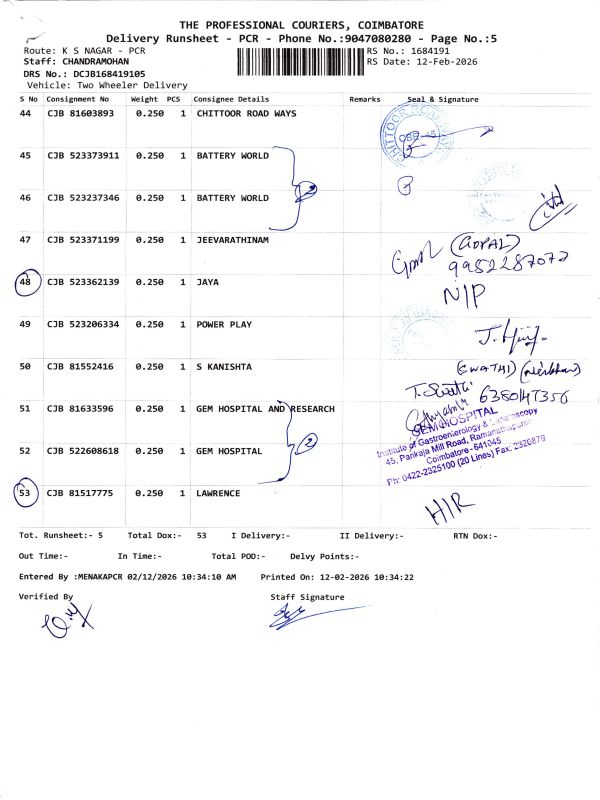 THE PROFESSIONAL COURIERS, COIMBATORE
Delivery Runsheet - PCR - Phone No.:9047080280 - Page No.:5
Route: K S NAGAR - PCR
RS No.: 1684191
Staff: CHANDRAMOHAN
RS Date: 12-Feb-2026
DRS No.: DCJB168419105
Vehicle: Two Wheeler Delivery
S No Consignment No Weight PCS Consignee Details Remarks Seal & Signature
44 CJB 81603893 0.250 1 CHITTOOR ROAD WAYS
CHITTOOR ROAD
CBE-45
45 CJB 523373911 0.250 1 BATTERY WORLD
46 CJB 523237346 0.250 1 BATTERY WORLD
2
47 CJB 523371199 0.250 1 JEEVARATHINAM
(GOPAL)
9952287072
48 CJB 523362139 0.250 1 JAYA
N/P
49 CJB 523206334 0.250 1 POWER PLAY
50 CJB 81552416 0.250 1 S KANISHTA
(SWATHI)
6380147356
51 CJB 81633596 0.250 1 GEM HOSPITAL AND RESEARCH
52 CJB 522608618 0.250 1 GEM HOSPITAL
2
GEM HOSPITAL
Institute of Gastroenterology & Laparoscopy
45, Pankaja Mill Road, Ramanathapuram
Coimbatore - 641045
Ph: 0422-2325100 (20 Lines) Fax: 2320879
53 CJB 81517775 0.250 1 LAWRENCE
H/R
Tot. Runsheet:- 5 Total Dox:- 53 I Delivery:- II Delivery:- RTN Dox:-
Out Time:- In Time:- Total POD:- Delvy Points:-
Entered By :MENAKAPCR 02/12/2026 10:34:10 AM Printed On: 12-02-2026 10:34:22
Verified By Staff Signature